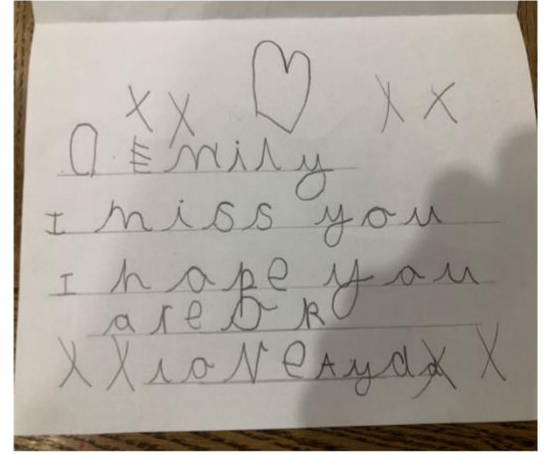 X X X X
Emily
I miss you
I hope you
are Ok
X X love Ayda X X